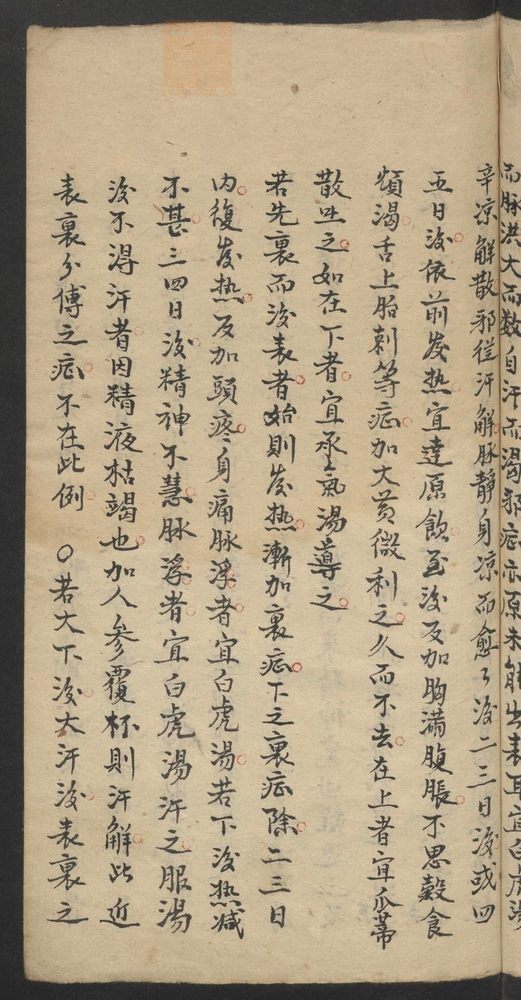 而脉洪大而数自汗而渴邪症亦原未解出表耳宜白虎湯
辛凉解散邪從汗解脉静身凉而愈〻後二三日後或四
五日後依前发热宜達原飲至後反加胸满腹脹不思穀食
煩渴舌上胎刺等症加大黄微利之久而不去在上者宜瓜蒂
散吐之如在下者宜承氣湯導之
若先裏而後表者始則发热漸加裏症下之裏症除二三日
内復发热反加頭疼身痛脉浮者宜白虎湯若下後热减
不甚三四日後精神不慧脉浮者宜白虎湯汗之服湯
後不得汗者因精液枯竭也加人参覆杯則汗解此近
表裏分傳之症不在此例 〇若大下後大汗後表裏之